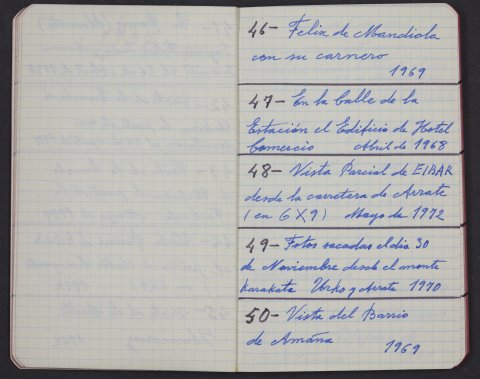 46- Felix de Mandiola
con su carnero
1969
47- En la Calle de la
Estación el Edificio de Hotel
Comercio Abril de 1968
48- Vista Parcial de EIBAR
desde la carretera de Arrate
(en 6X9) Mayo de 1972
49- Fotos sacadas el dia 30
de Noviembre desde el monte
Karakate Urko y Arrate 1970
50- Vista del Barrio
de Amaña
1969